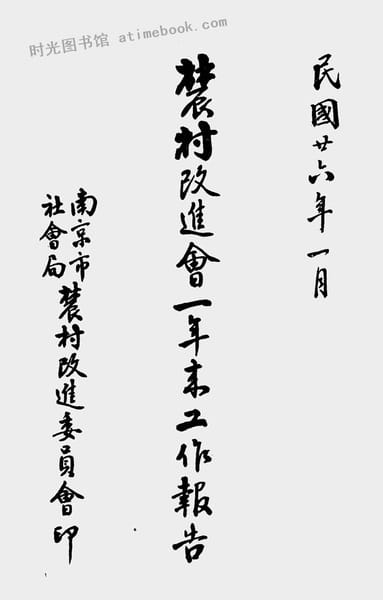 时光图书馆 atimebook.com
民國廿六年一月
農村改進會一年來工作報告
南京市
社會局
農村改進委員會印